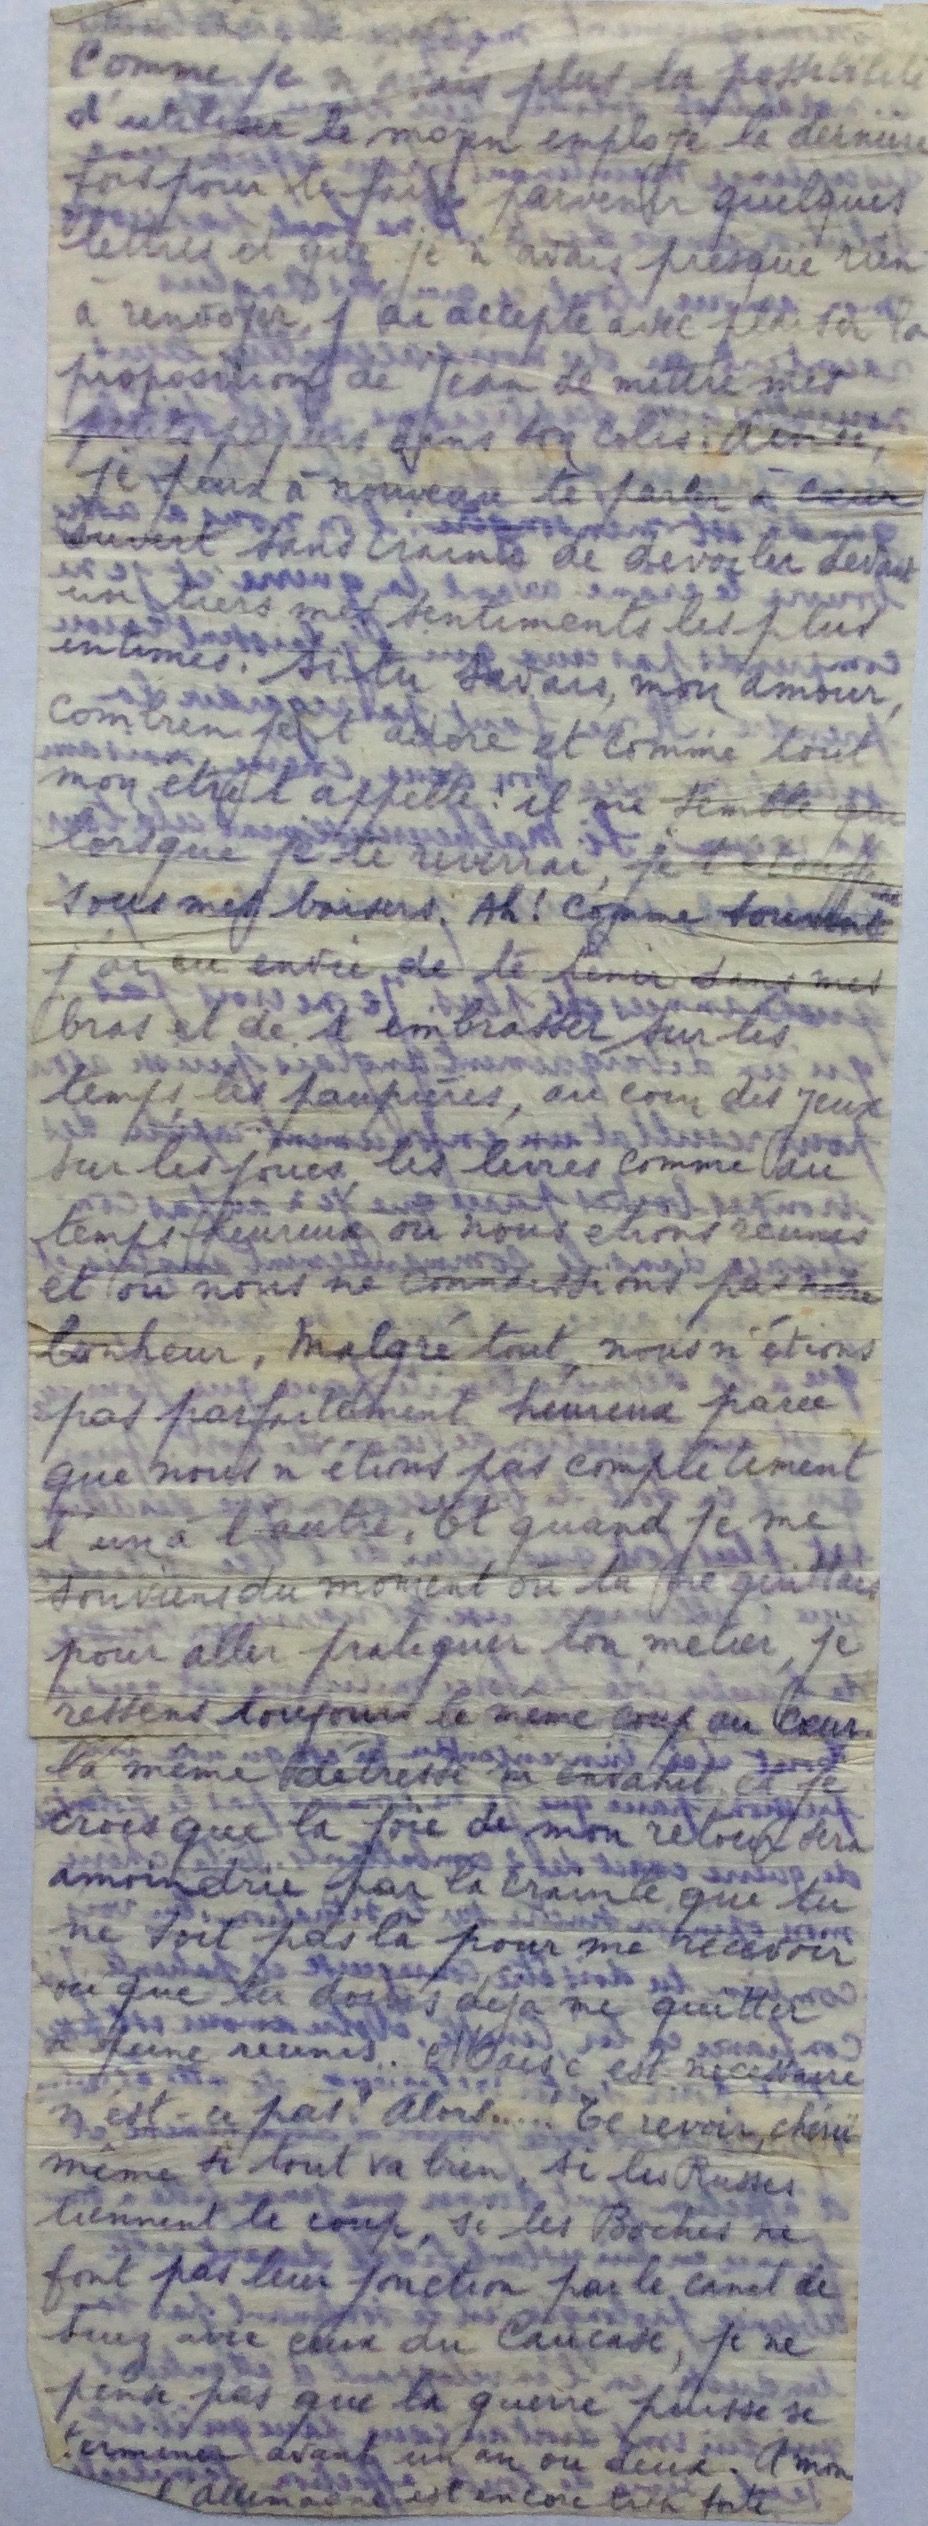 Comme je n'avais plus la possibilité
d'utiliser le moyen employé la dernière
fois pour te faire parvenir quelques
lettres et que je n'avais presque rien
à renvoyer, j'ai accepté avec plaisir la
proposition de Jean de mettre mes
petits papiers dans ton colis. Ainsi,
je peux à nouveau te parler à cœur
ouvert sans crainte de dévoiler devant
un tiers mes sentiments les plus
intimes. Si tu savais, mon amour,
combien je t'adore et comme tout
mon être t'appelle! il me semble que
lorsque je te reverrai, je t'étoufferai
sous mes baisers. Ah! Comme souvent
j'ai eu envie de te tenir dans mes
bras et de t'embrasser sur les
temps, les paupières, au coin des yeux
sur les joues, les lèvres comme au
temps heureux où nous étions réunis
et où nous ne connaissions pas notre
bonheur. Malgré tout, nous n'étions
pas parfaitement heureux parce
que nous n'étions pas complètement
l'un à l'autre. Et quand je me
souviens du moment où tu me quittais
pour aller pratiquer ton métier, je
ressens toujours le même coup au cœur
la même détresse m'envahit et je
crois que la joie de mon retour sera
amoindrie par la crainte que tu
ne soit pas là pour me recevoir
ou que tu doives déjà me quitter
à peine réunis... Mais c'est nécessaire
n'est-ce pas! Alors..... Te revoir, chérie
même si tout va bien, si les Russes
tiennent le coup, si les Boches ne
font pas leur jonction par le canal de
Suez avec ceux du Caucase, je ne
pense pas que la guerre puisse se
terminer avant un an ou deux. A mon
l'Allemagne est encore très forte